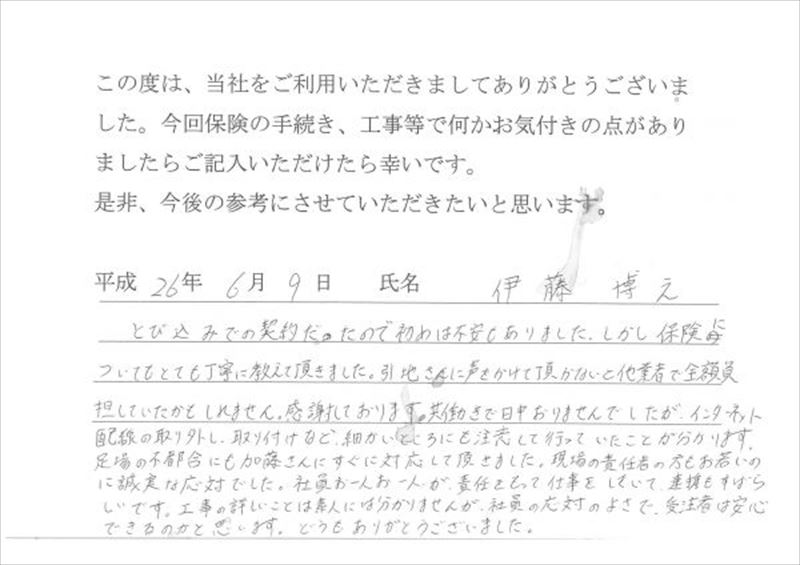 この度は、当社をご利用いただきましてありがとうございま
した。今回保険の手続き、工事等で何かお気付きの点があり
ましたらご記入いただけたら幸いです。
是非、今後の参考にさせていただきたいと思います。
平成 26年 6月 9日 氏名 伊藤 博え
とび込みでの契約だったので初めは不安もありました。しかし保険に
ついてもとても丁寧に教えて頂きました。引地さんに声をかけて頂かないと他業者で全額負
担していたかもしれません。感謝しております。共働きで日中おりませんでしたが、インターネット
配線の取り外し、取り付けなど、細かいところにも注意して行っていたことが分かります。
足場の不都合にも加藤さんにすぐに対応して頂きました。現場の責任者の方もお若いの
に誠実な応対でした。社員お一人お一人が、責任をもって仕事をしていて、連携もすばら
しいです。工事の詳しいことは素人には分かりませんが、社員の応対のよさで、受注者は安心
できるのかと思います。どうもありがとうございました。